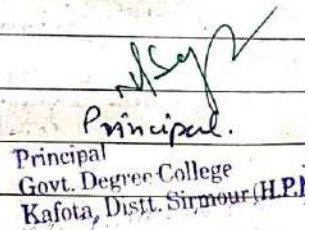 Principal.
Principal
Govt. Degree College
Kafota, Distt. Sirmour (H.P.)